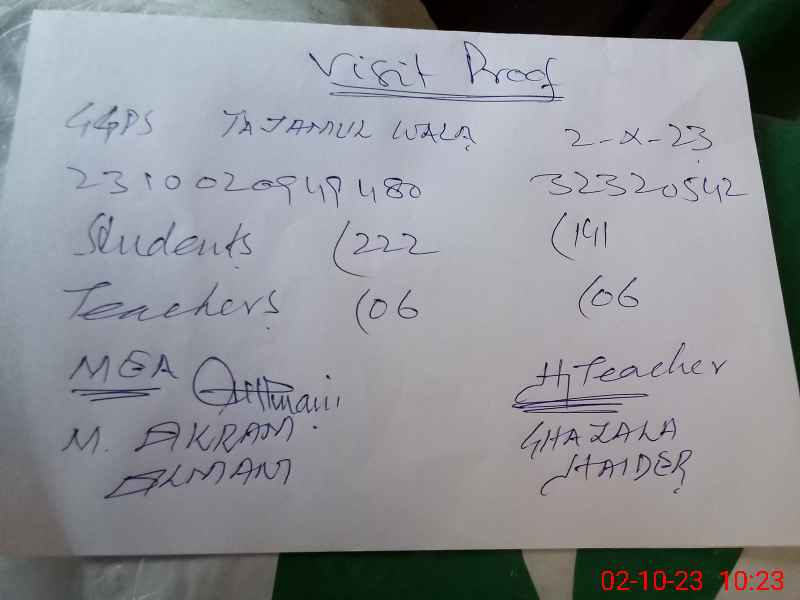 Visit Proof
GGPS TAJAMUL WALA 2-X-23
2310020949480 32320542
Students (222 (191
Teachers (06 (06
MEA H/Teacher
M. AKRAM GHAZALA
HAIDER
02-10-23 10:23